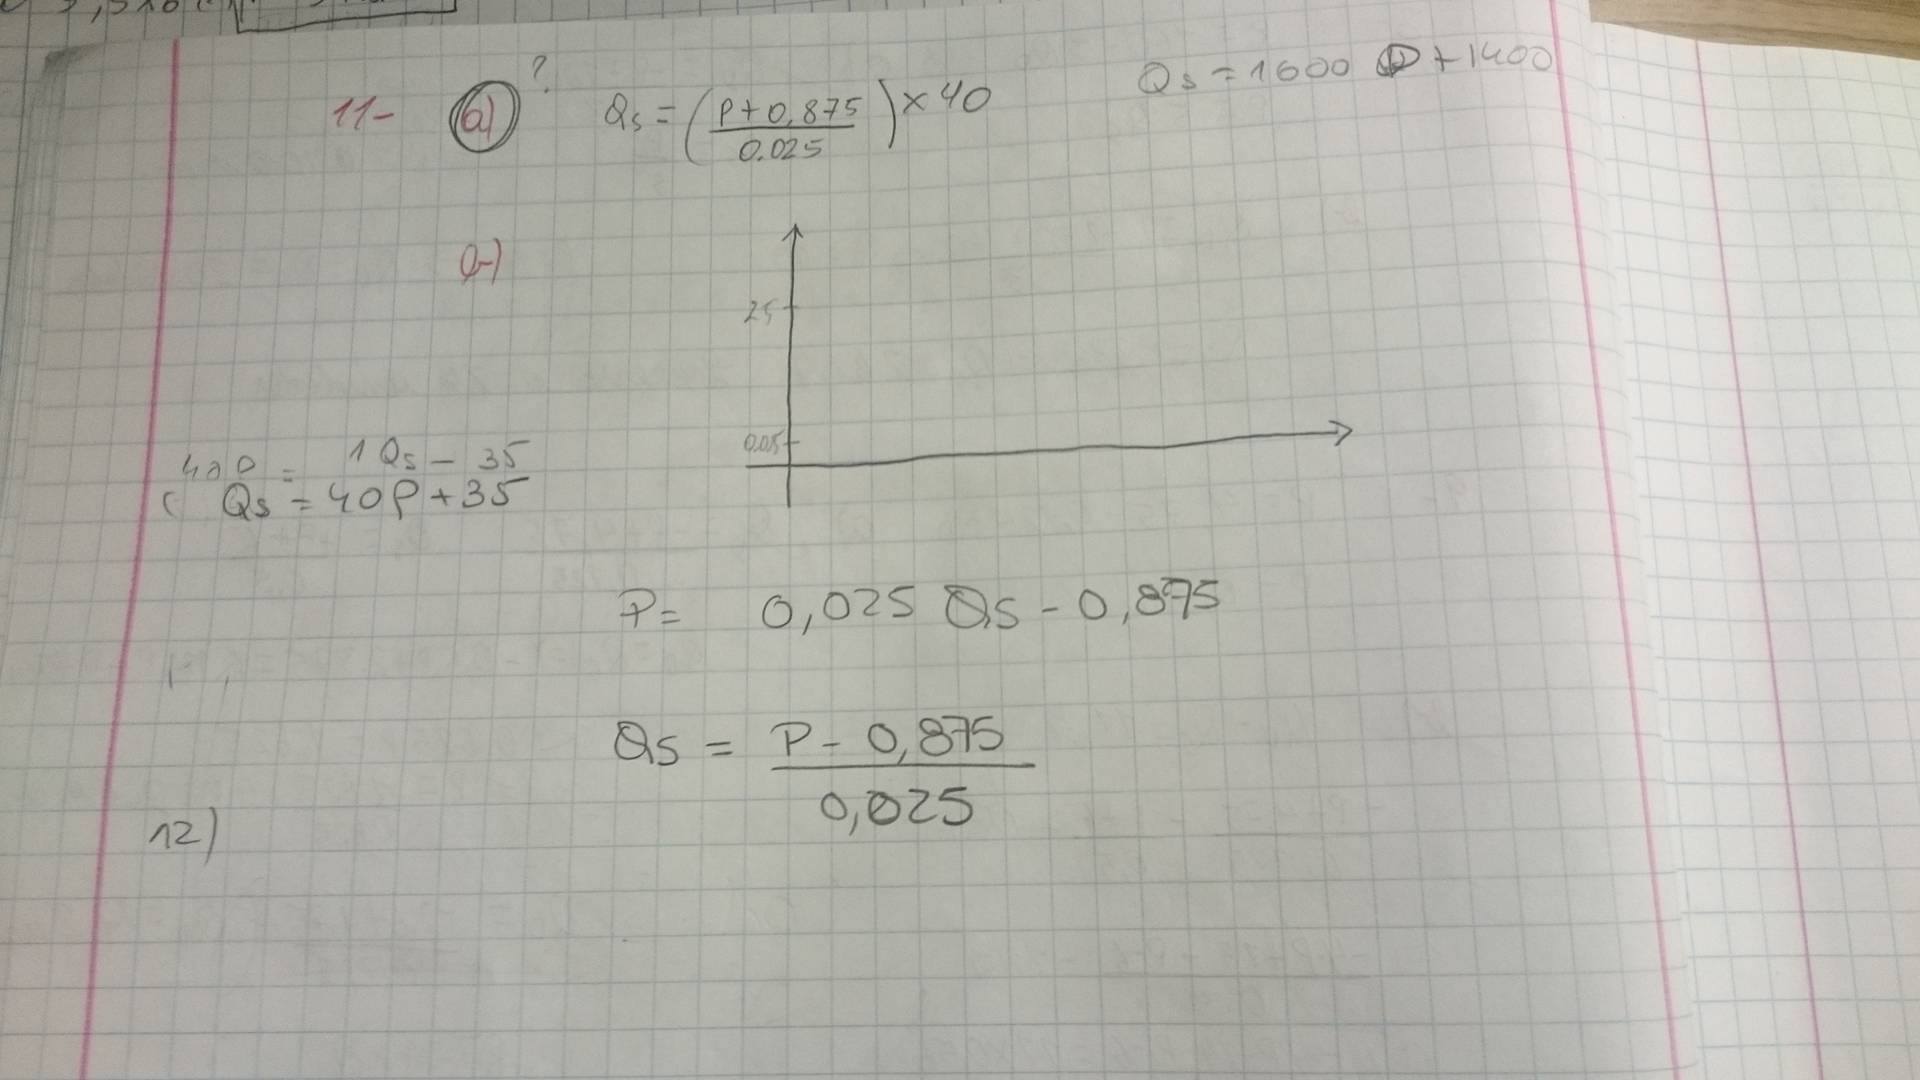 11- a) ? Qs = (P+0,875 / 0.025) × 40
Qs = 1600 P + 1400
b)
25
0.05
40P = 1Qs - 35
Qs = 40P + 35
P = 0,025 Qs - 0,875
Qs = P - 0,875
0,025
12)